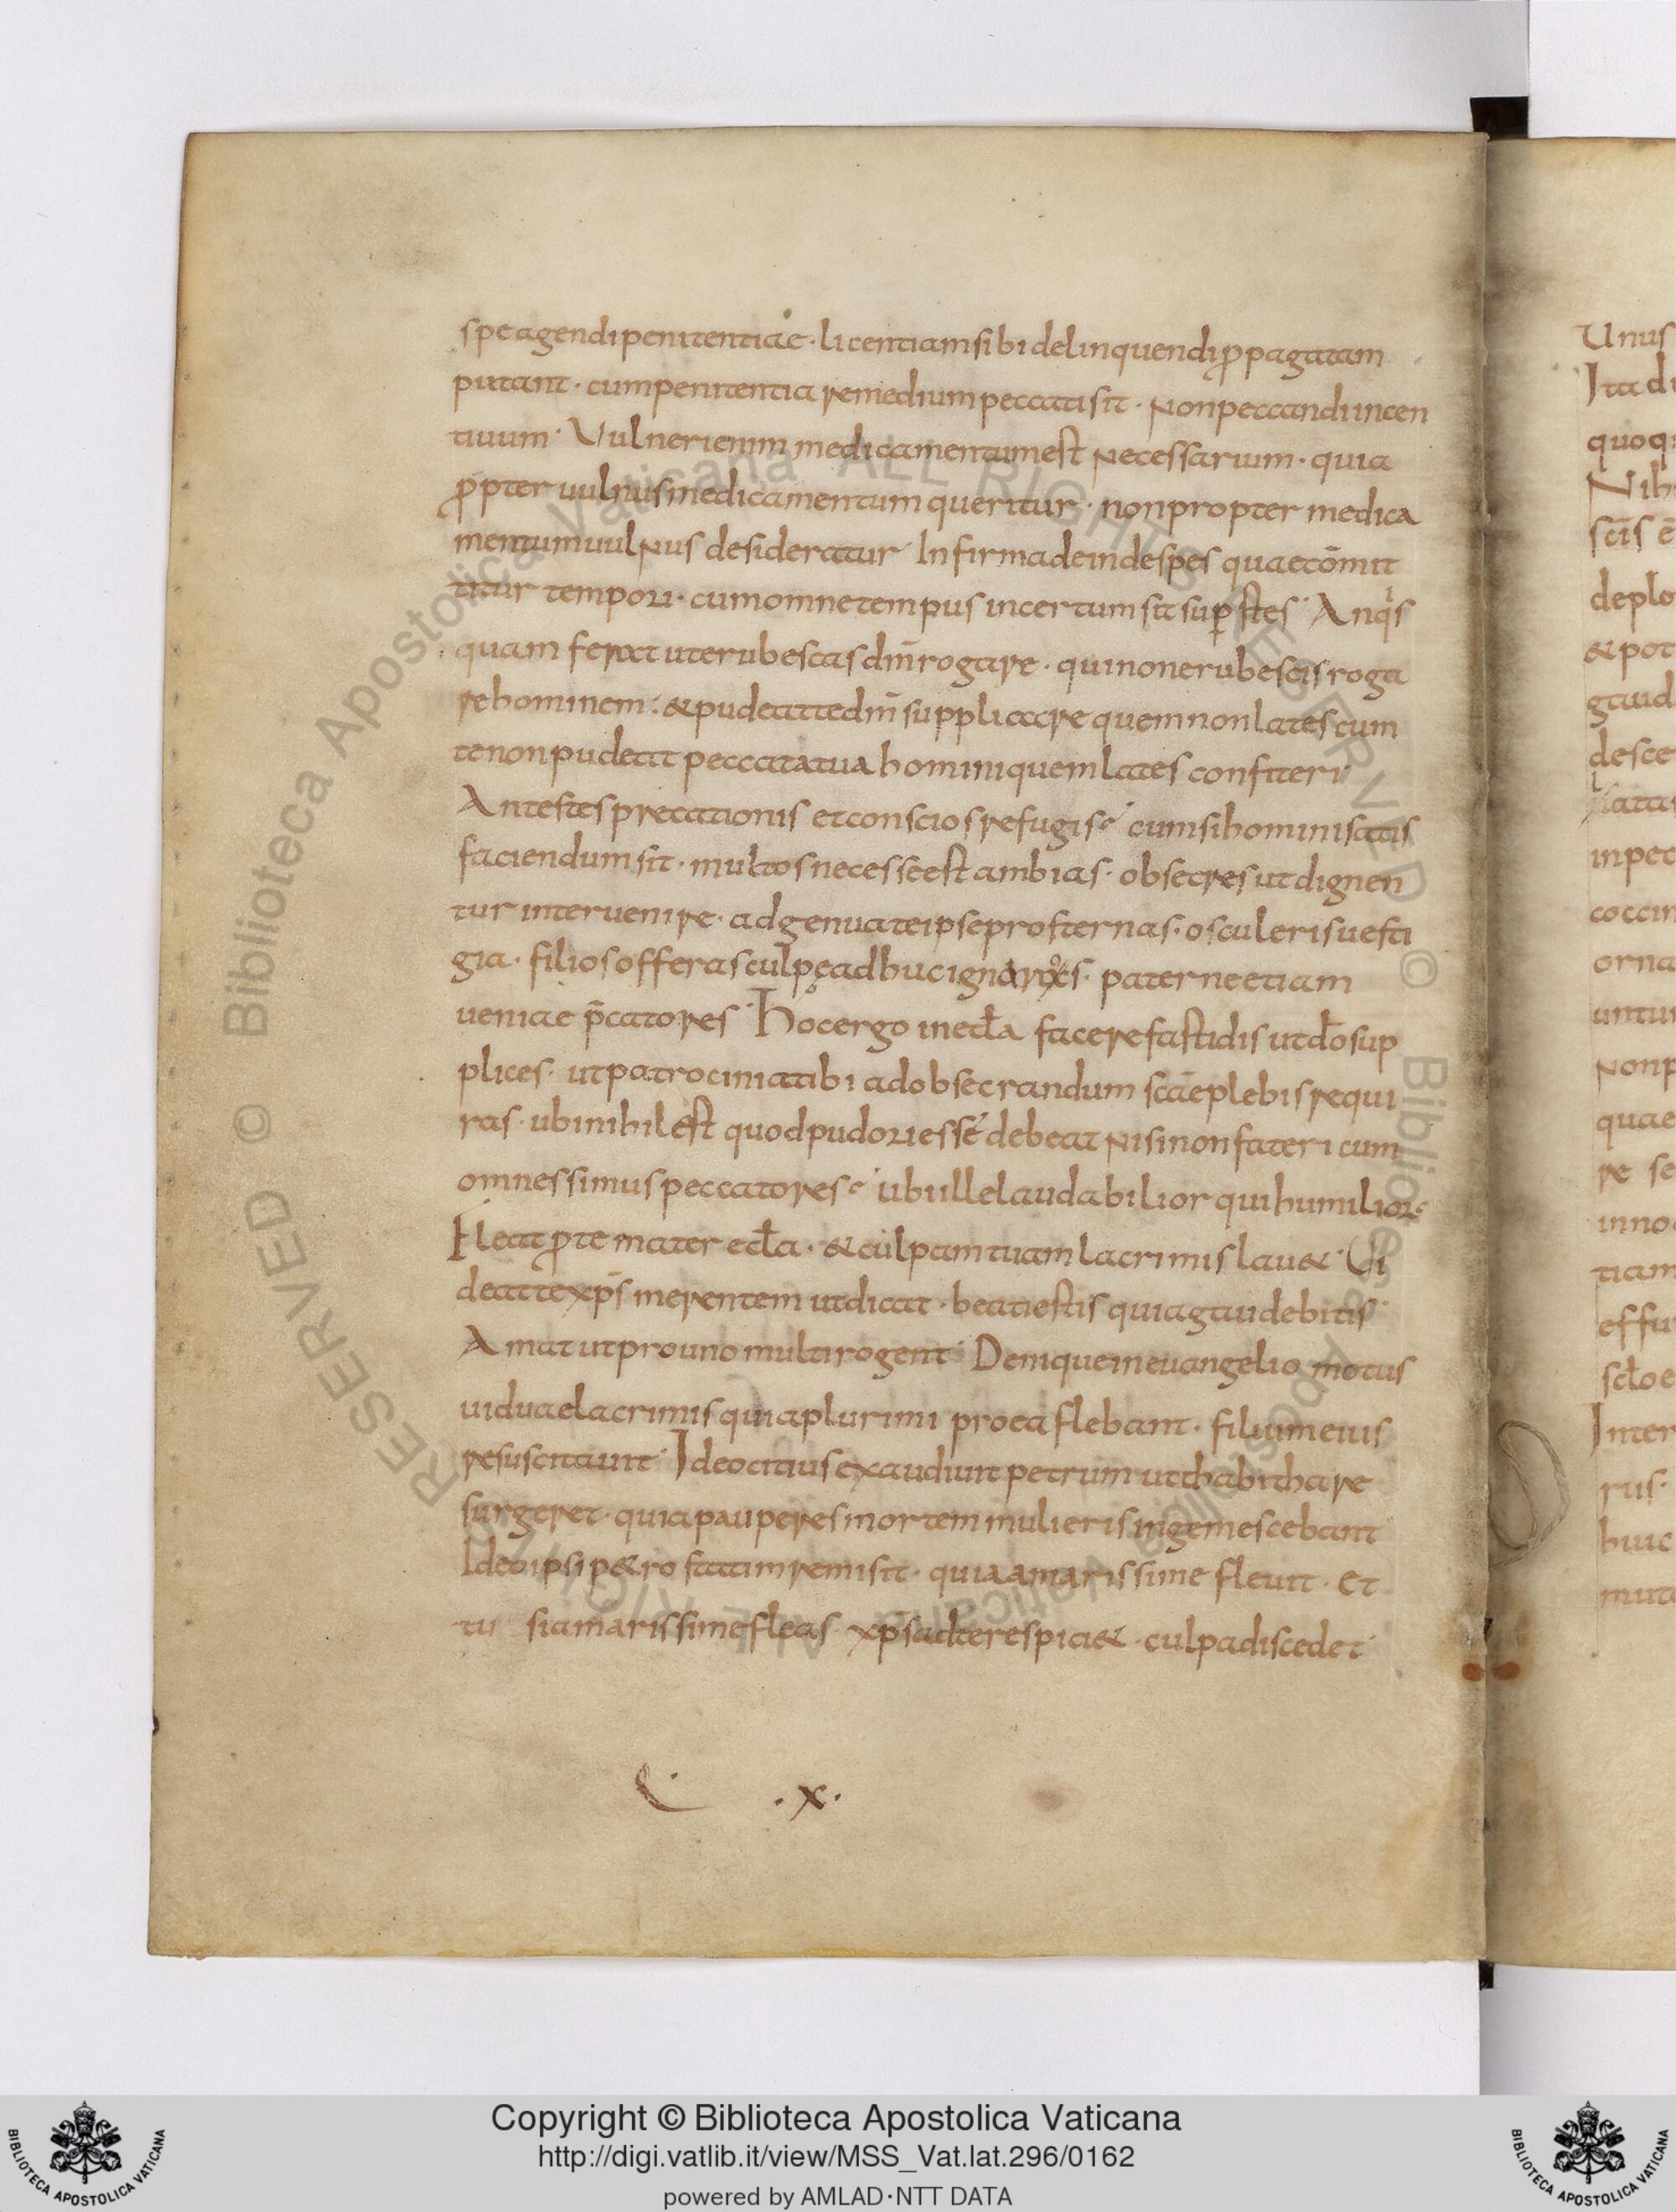 spe agendi penitentiae · licentiam sibi delinquendi ꝓpagatam
putant · cum penitentia remedium peccati sit · Non peccandi incen
tiuum · Vulneri enim medicamentum est Necessarium · quia
ꝓpter uulnus medicamentum queritur · non propter medica
mentum uulNus desideratur · Infirma deinde spes quae cōmit
titur tempori · cum omne tempus incertum sit suꝑstes · An qͥs
quam ferat ut erubescas dm̄ rogare · qui non erubescis roga
re hominem : & pudeat te dm̄ supplicare quem non lates cum
te non pudeat peccata tua homini quem lates confiteri
An testes precationis et conscios refugis · cum si homini satis
faciendum sit · multos necesse est ambias · obsecres ut dignen
tur interuenire · ad genua te ipse prosternas · osculeris uesti
gia · filios offeras culpę adhuc ignaros · paterne etiam
ueniae p̄catores · Hoc ergo in eccl̄a facere fastidis ut dō sup
plices · ut patrocinia tibi ad obsecrandum scāe plebis requi
ras · ubi nihil est quod pudori esse debeat Nisi non fateri cum
omnes simus peccatores · ubi ille laudabilior qui humilior ·
Fleat ꝓ te mater eccl̄a · & culpam tuam lacrimis lau& · Vi
deat te xp̄s merentem ut dicat · beati estis quia gaudebitis
Amat ut pro uno multi rogent · Denique in euangelio motus
uiduae lacrimis quia plurimi pro ea flebant · filium eius
resuscitauit · Ideo citius exaudiuit petrum ut thabitha re
surgeret · quia pauperes mortem mulieris ingemescebant
Ideo ipsi p&ro statim remisit · quia amarissime fleuit · Et
tu si amarissime fleas · xp̄s ad te respici& · culpa discedet
· x ·
Unus
Ita di
quoq:
Nih
sc̄is ē
deplo
& pot
gaud
desce
inpec
coccin
orna
untur
Nonp
quae
re se
inno
tiam
effu
Inter
rus ·
huic
muta
© Biblioteca Apostolica Vaticana ALL RIGHTS RESERVED © Biblioteca Apostolica Vaticana ALL RIGHTS RESERVED
BIBLIOTECA APOSTOLICA VATICANA
Copyright © Biblioteca Apostolica Vaticana
http://digi.vatlib.it/view/MSS_Vat.lat.296/0162
powered by AMLAD·NTT DATA
BIBLIOTECA APOSTOLICA VATICANA